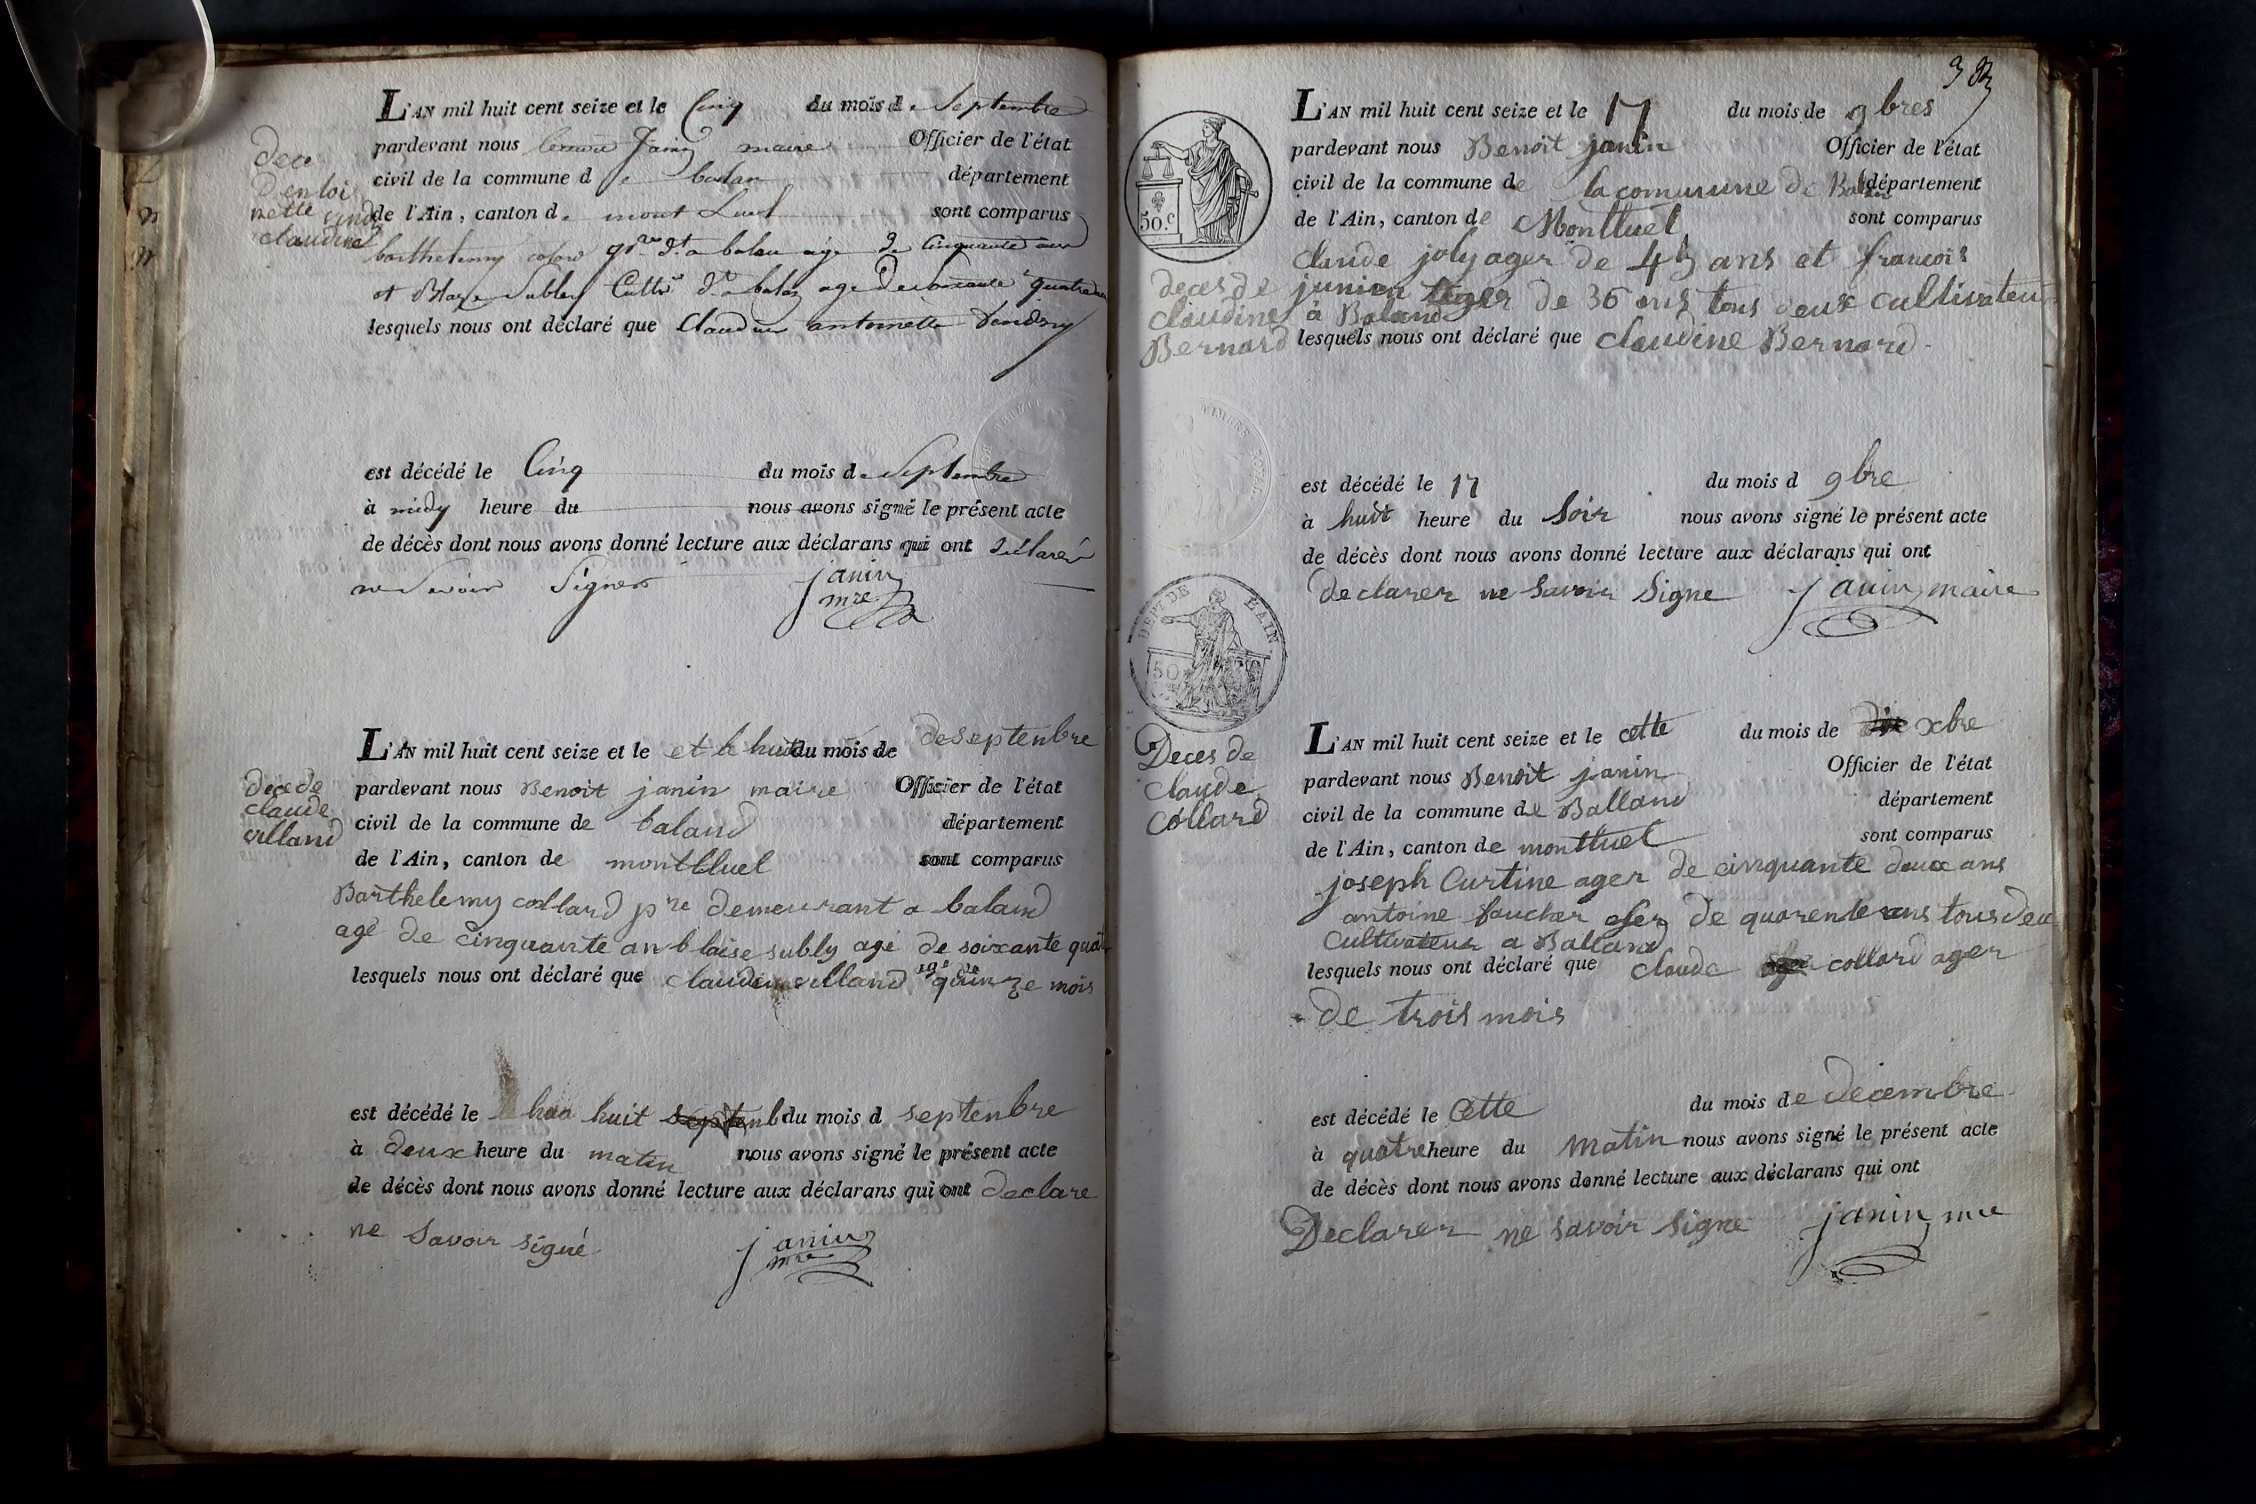 L'AN mil huit cent seize et le Cinq du mois de Septembre
pardevant nous janin maire Officier de l'état
civil de la commune de balan département
de l'Ain, canton de mont Luel sont comparus
barthelemy âgé de Cinquante ans
et Blaze Subley Cultr dt a balan age de soixante quatre
lesquels nous ont déclaré que Claudine antoinette
est décédé le Cinq du mois de Septembre
à midy heure du nous avons signé le présent acte
de décès dont nous avons donné lecture aux déclarans qui ont déclaré
ne Savoir Signer janin
mre
claudine
L'AN mil huit cent seize et le et le huit du mois de de septenbre
pardevant nous Benoit janin maire Officier de l'état
civil de la commune de baland département
de l'Ain, canton de montlluel sont comparus
Barthelemy collard pre demeurant a baland
agé de cinquante an blaise subly agé de soixante quat
lesquels nous ont déclaré que quinze mois
est décédé le huit septenb du mois d septenbre
à deux heure du maten nous avons signé le présent acte
de décès dont nous avons donné lecture aux déclarans qui ont declare
ne savoir signé janin
mre
dece de
claude
L'AN mil huit cent seize et le 17 du mois de 9bres
pardevant nous Benoit janin Officier de l'état
civil de la commune de la commune de Balan département
de l'Ain, canton de Montluel sont comparus
Claude joly ager de 45 ans et francois
junien de 36 ans tous deux cultivateur
à Baland
lesquels nous ont déclaré que claudine Bernard
deces de
claudine
Bernard
50.c
est décédé le 17 du mois d 9bre
à huit heure du Soir nous avons signé le présent acte
de décès dont nous avons donné lecture aux déclarans qui ont
declarer ne savoir signe janin maire
DEPT DE L'AIN
50
L'AN mil huit cent seize et le cette du mois de xbre
pardevant nous Benoit janin Officier de l'état
civil de la commune de Balland département
de l'Ain, canton de montluel sont comparus
joseph Curtine ager de cinquante deux ans
antoine faucher ager de quarente ans tous deu
cultivateur a Balland
lesquels nous ont déclaré que claude collard ager
de trois mois
Deces de
claude
collard
est décédé le cette du mois de decembre
à quatre heure du matin nous avons signé le présent acte
de décès dont nous avons donné lecture aux déclarans qui ont
Declarer ne savoir signe janin mre